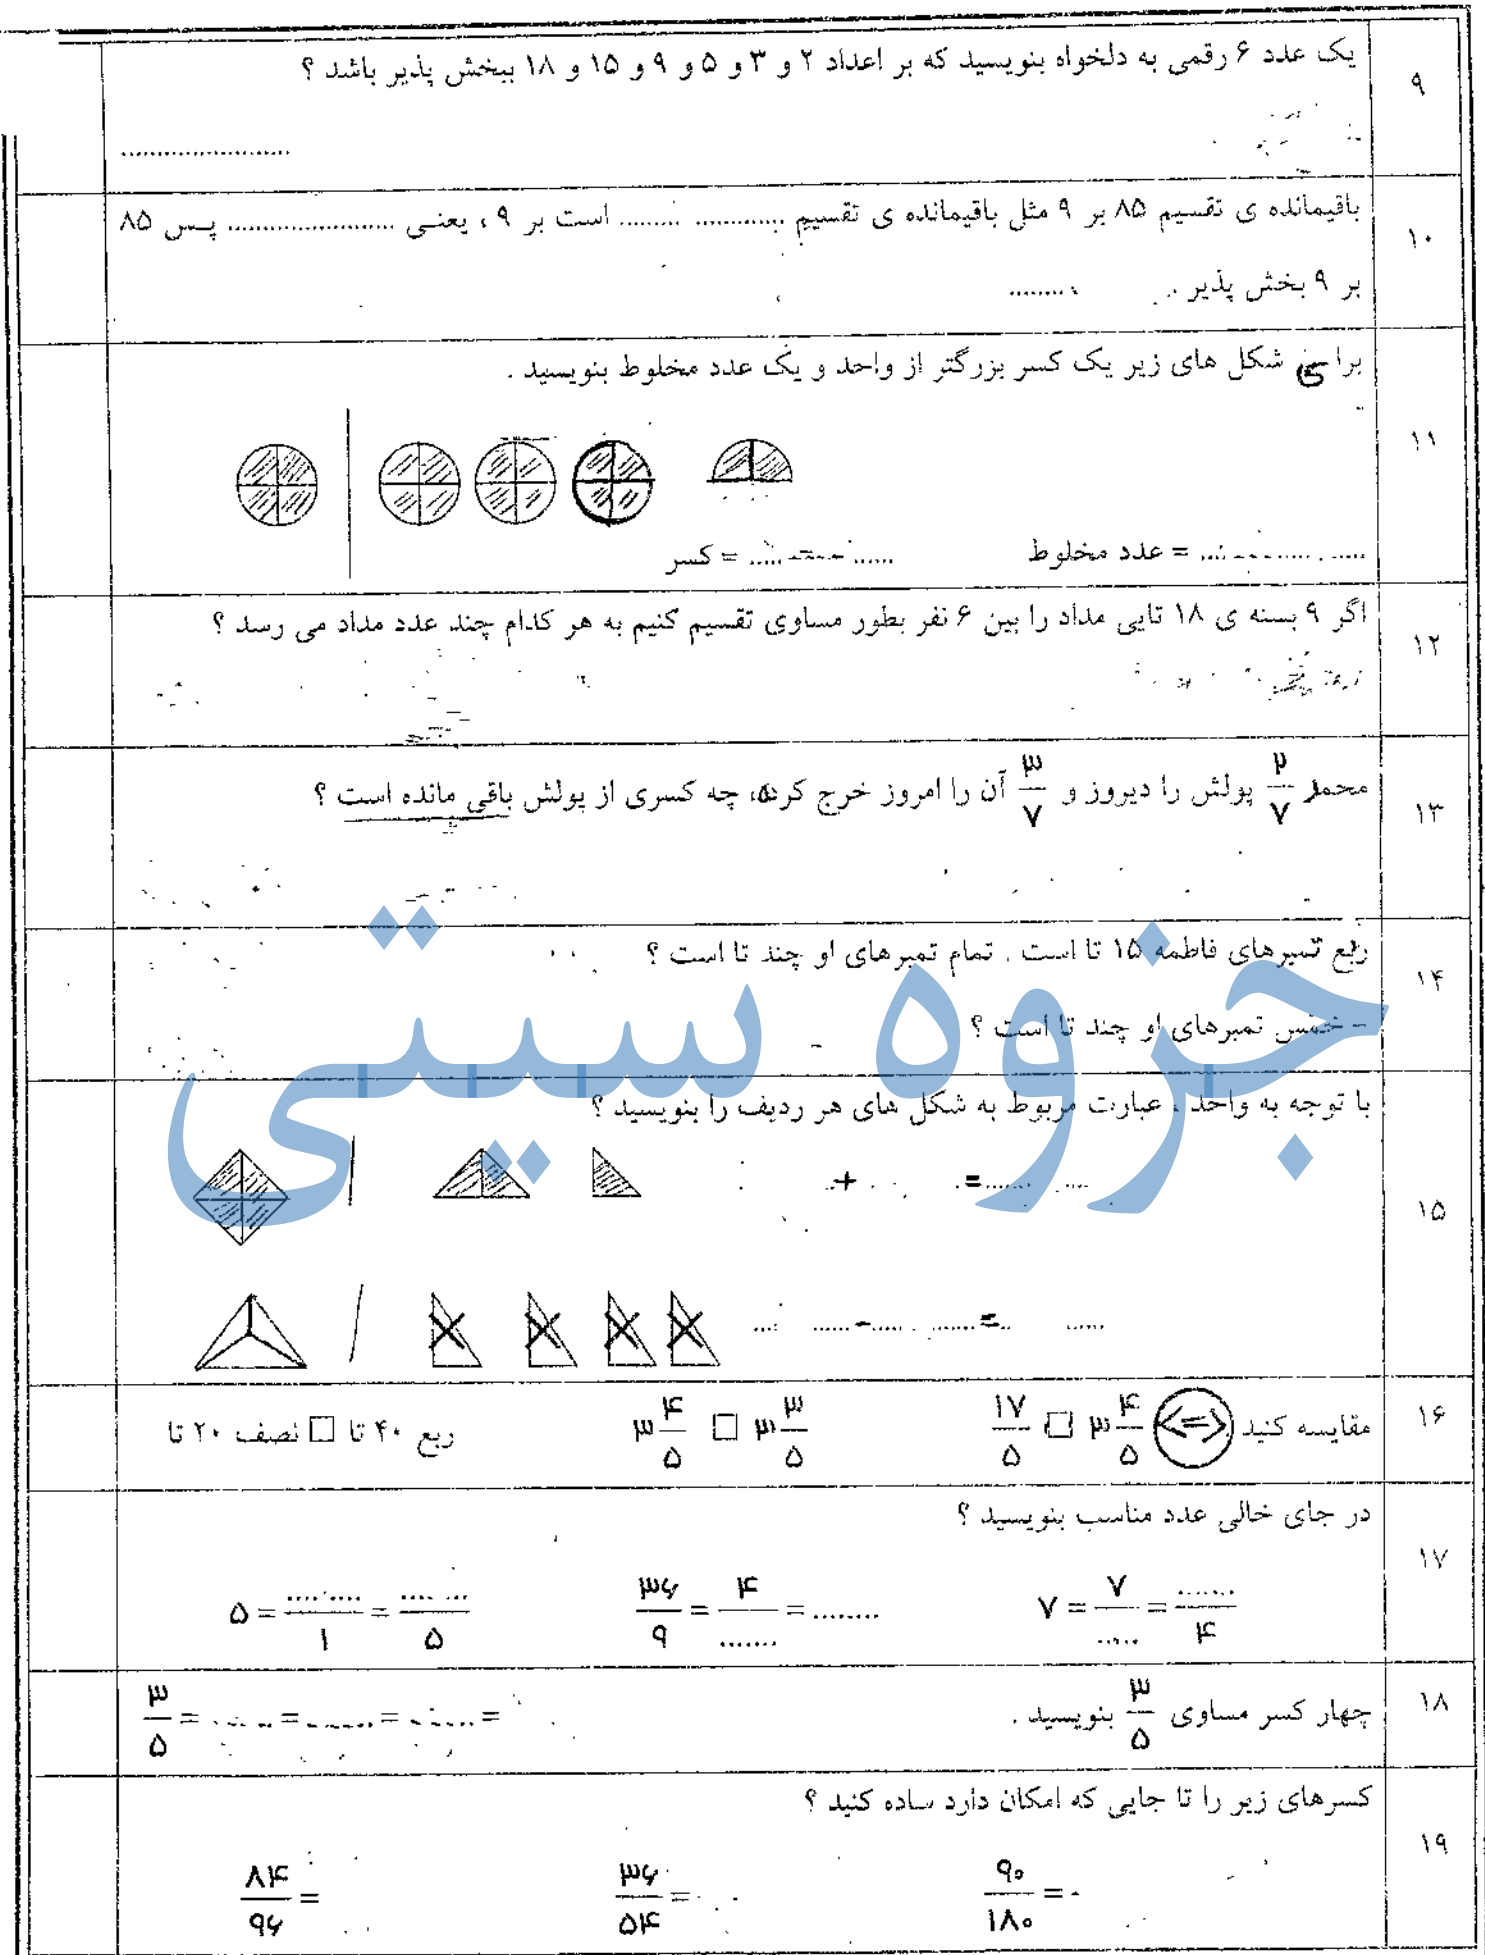 ۹
یک عدد ۶ رقمی به دلخواه بنویسید که بر اعداد ۲ و ۳ و ۵ و ۹ و ۱۵ و ۱۸ ببخش پذیر باشد ؟
......................
۱۰
باقیمانده ی تقسیم ۸۵ بر ۹ مثل باقیمانده ی تقسیم ............ ........ است بر ۹ ، یعنی ...................... پس ۸۵
بر ۹ بخش پذیر . .........
۱۱
برای شکل های زیر یک کسر بزرگتر از واحد و یک عدد مخلوط بنویسید .
................ = عدد مخلوط ................ = کسر
۱۲
اگر ۹ بسته ی ۱۸ تایی مداد را بین ۶ نفر بطور مساوی تقسیم کنیم به هر کدام چند عدد مداد می رسد ؟
۱۳
محمد ۲/۷ پولش را دیروز و ۳/۷ آن را امروز خرج کرده، چه کسری از پولش باقی مانده است ؟
۱۴
ربع تمبرهای فاطمه ۱۵ تا است . تمام تمبرهای او چند تا است ؟
- خمس تمبرهای او چند تا است ؟
جزوه سیتی
۱۵
با توجه به واحد ، عبارت مربوط به شکل های هر ردیف را بنویسید ؟
+ = ......
...... - ...... = ......
۱۶
مقایسه کنید <=> ۳ ۴/۵ □ ۱۷/۵ ۳ ۳/۵ □ ۳ ۴/۵ ربع ۴۰ تا □ نصف ۲۰ تا
۱۷
در جای خالی عدد مناسب بنویسید ؟
۵ = ......./۱ = ......./۵ ۳۶/۹ = ۴/....... = ........ ۷ = ۷/..... = ......./۴
۱۸
چهار کسر مساوی ۳/۵ بنویسید .
۳/۵ = ...... = ...... = ...... =
۱۹
کسرهای زیر را تا جایی که امکان دارد ساده کنید ؟
۸۴/۹۶ = ۳۶/۵۴ = ۹۰/۱۸۰ =